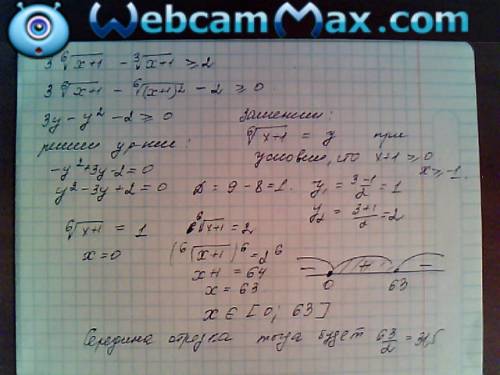 WebcamMax.com
3 ⁶√x+1 - ³√x+1 ≥ 2
3 ⁶√x+1 - ⁶√(x+1)² - 2 ≥ 0
3y - y² - 2 ≥ 0 Заменим:
⁶√x+1 = y при
решим ур-ние: условии, что x+1 ≥ 0
x ≥ -1.
-y²+3y-2=0
y²-3y+2=0 D = 9-8=1. y₁ = (3-1)/2 = 1
y₂ = (3+1)/2 = 2
⁶√x+1 = 1 ⁶√x+1 = 2
x=0 (⁶√x+1)⁶ = 2⁶
x+1 = 64
x = 63
- + -
0 63
x ∈ [0; 63]
Середина отрезка тогда будет 63/2 = 31,5